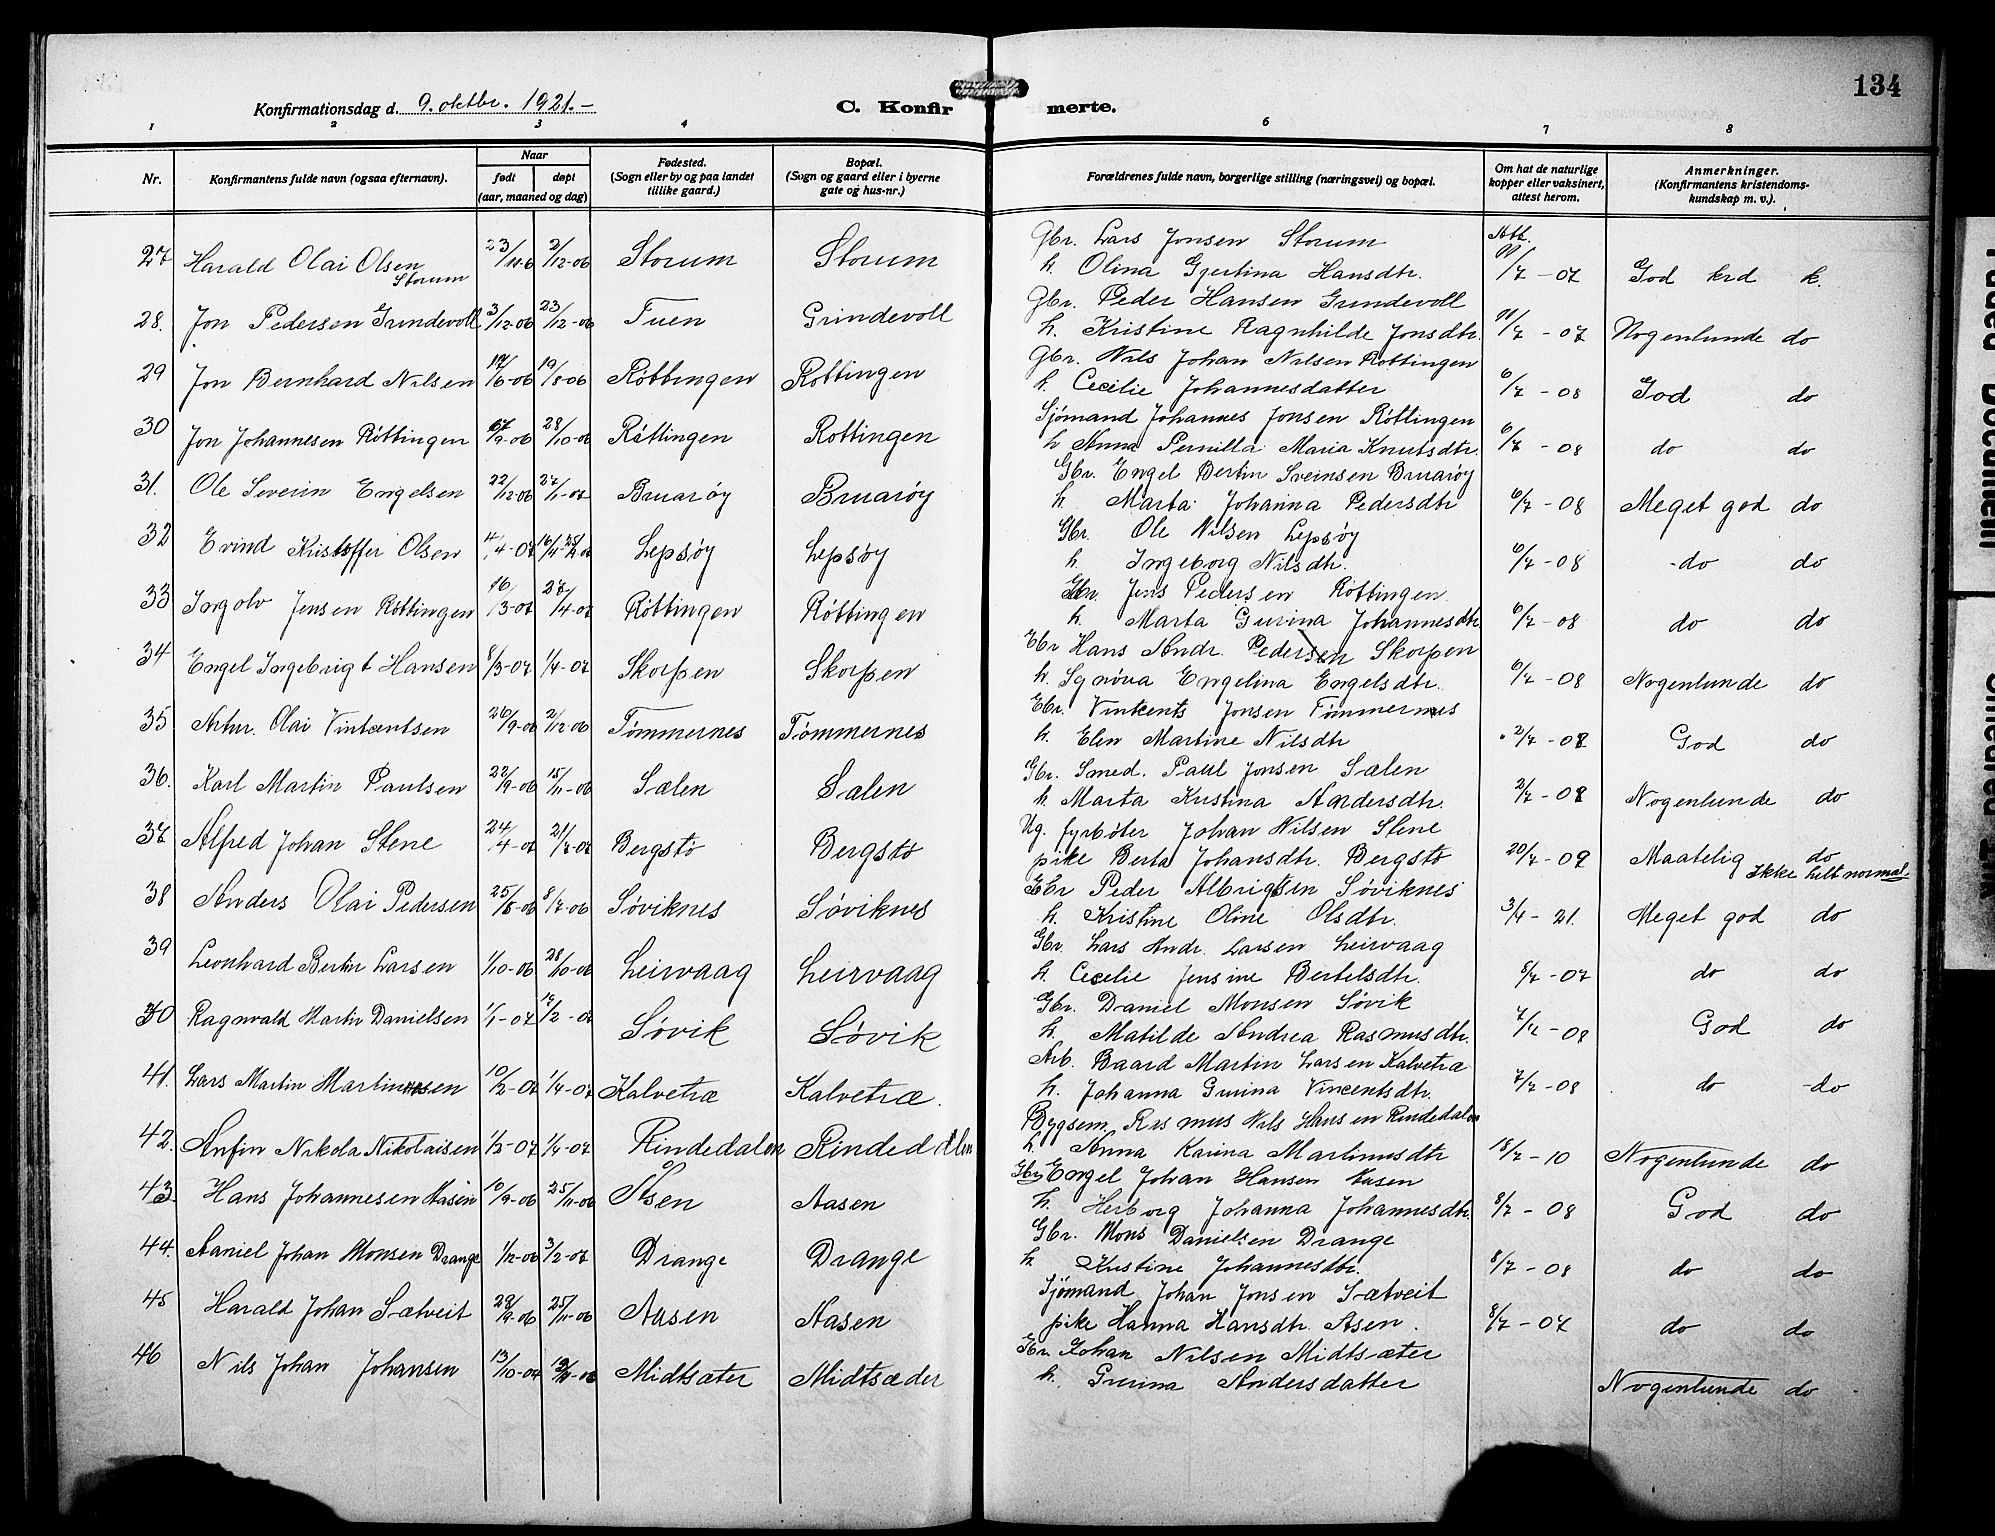 134
Konfirmationsdag d. 9. oktbr. 1921.-
C. Konfirmerte.
1 2 3 4 5 6 7 8
Nr. Konfirmantens fulde navn (ogsaa efternavn). Naar født døpt (aar, maaned og dag) Fødested. (Sogn eller by og paa landet tillike gaard.) Bopæl. (Sogn og gaard eller i byerne gate og hus-nr.) Forældrenes fulde navn, borgerlige stilling (næringsvei) og bopæl. Om hat de naturlige kopper eller vaksinert, attest herom. Anmerkninger. (Konfirmantens kristendomskundskap m. v.).
27 Harald Olai Olsen Storum 23/11-06 2/12-06 Storum Storum Gbr. Lars Jonsen Storum
h. Olina Gjertina Hansdtr. Att. 11/7-07 God krd k.
28. Jon Pedersen Grindevoll 3/12-06 23/12-06 Tuen Grindevoll Gbr. Peder Hansen Grindevoll
h. Kristine Ragnhilde Jonsdtr. 11/7-07 Nogenlunde do
29 Jon Bernhard Nilsen 17/6-06 19/8-06 Röttingen Rottingen Gbr. Nils Johan Nilsen Rottingen
h. Cecilie Johannesdatter 6/7-08 God do
30 Jon Johannesen Röttingen /9-06 28/10-06 Röttingen Rottingen Sjömand Johannes Jonsen Röttingen
h Anna Pernilla Maria Knutsdtr. 6/7-08 do do
31. Ole Severin Engelsen 22/12-06 27/1-07 Bruarøy Bruarøy Gbr. Engel Bertin Sveinsen Bruarøy
h. Marta Johanna Pedersdtr 6/7-08 Meget god do
32 Evind Kristoffer Olsen 4/4-07 Lepsøy Lepsøy Gbr. Ole Nilsen Lepsøy
h. Ingeborg Nilsdtr. 6/7-08 do do
33 Ingolv Jensen Röttingen 16/3-07 27/4-07 Röttingen Röttingen Gbr. Jens Pedersen Röttingen
h. Marta Gurina Johannesdtr 6/7-08 do do
34 Engel Ingebrigt Hansen 8/3-07 1/4-07 Skorpen Skorpen Gbr Hans Andr. Pedersen Skorpen
h. Synöva Engelina Engelsdtr. 6/7-08 Nogenlunde do
35 Artur Olai Vintcentsen 26/9-06 2/12-06 Tømmernes Tømmernes Gbr. Vintcents Jonsen Tømmernes
h. Elen Martine Nilsdtr 2/7-08 God do
36. Karl Martin Paulsen 22/9-06 15/11-06 Sælen Sælen Gbr. Smed. Paul Jonsen Sælen
h. Marta Kristina Andersdtr. 2/7-08 Nogenlunde do
37 Alfred Johan Stene 24/4-07 21/7-07 Bergstø Bergstø Ug. fyrböter Johan Nilsen Stene
pike Berta Johansdtr. Bergstø 20/7-09 Maatelig do Ikke helt normal
38 Anders Olai Pedersen 25/5-06 8/7-06 Søviknes Søviknes Gbr Peder Albrigtsen Søviknes
h. Kristine Oline Olsdtr. 3/4-21. Meget god do
39 Leonhard Bertin Larsen 1/10-06 28/10-06 Leirvaag Leirvaag Gbr. Lars Andr. Larsen Leirvaag
h. Cecelie Jensine Bertelsdtr. 8/7-07 do do
40 Ragnvald Martin Danielsen 1/1-07 17/2-07 Søvik Søvik Gbr. Daniel Monsen Søvik
h. Matilde Andrea Rasmusdtr. 7/7-08 God do
41. Lars Martin Martinussen 10/2-07 1/4-07 Kalvetræ Kalvetræ. Arb. Baard Martin Larsen Kalvetræ
h. Johanna Gurina Vincentsdtr. 7/7-08 do do
42. Anfin Nikola Nikolaisen 1/2-07 1/4-07 Rindedalen Rindedalen Bygsem. Rasmus Nils Hansen Rindedalen
h. Anna Karina Martinusdtr 18/7-10 Nogenlunde do
43. Hans Johannesen Aasen 10/9-06 25/11-06 Åsen Aasen Gbr Engel Johan Hansen Aasen
h. Herborg Johanna Johannesdtr. 8/7-08 God do
44. Daniel Johan Monsen Drange 1/12-06 3/2-07 Drange Drange Gbr. Mons Danielsen Drange
h. Kristine Johannesdtr. 8/7-08 do do
45 Harald Johan Sætveit 29/9-06 25/11-06 Aasen Aasen Sjømand Johan Jonsen Sætveit
pike Hanna Hansdtr. Åsen. 8/7-07 do do
46 Nils Johan Johansen 13/10-04 Midtsæter Midtsæder Gbr Johan Nilsen Midtsæter
h. Gurina Andersdatter Nogenlunde do